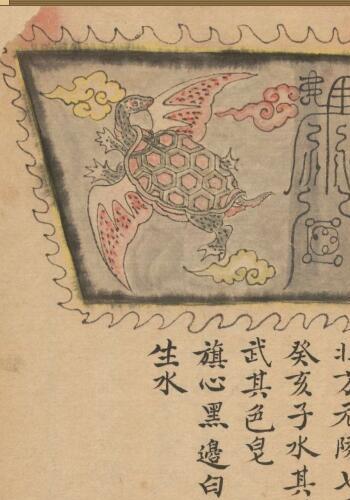 北方元
癸亥子水其
武其色皂
旗心黑邊白
生水